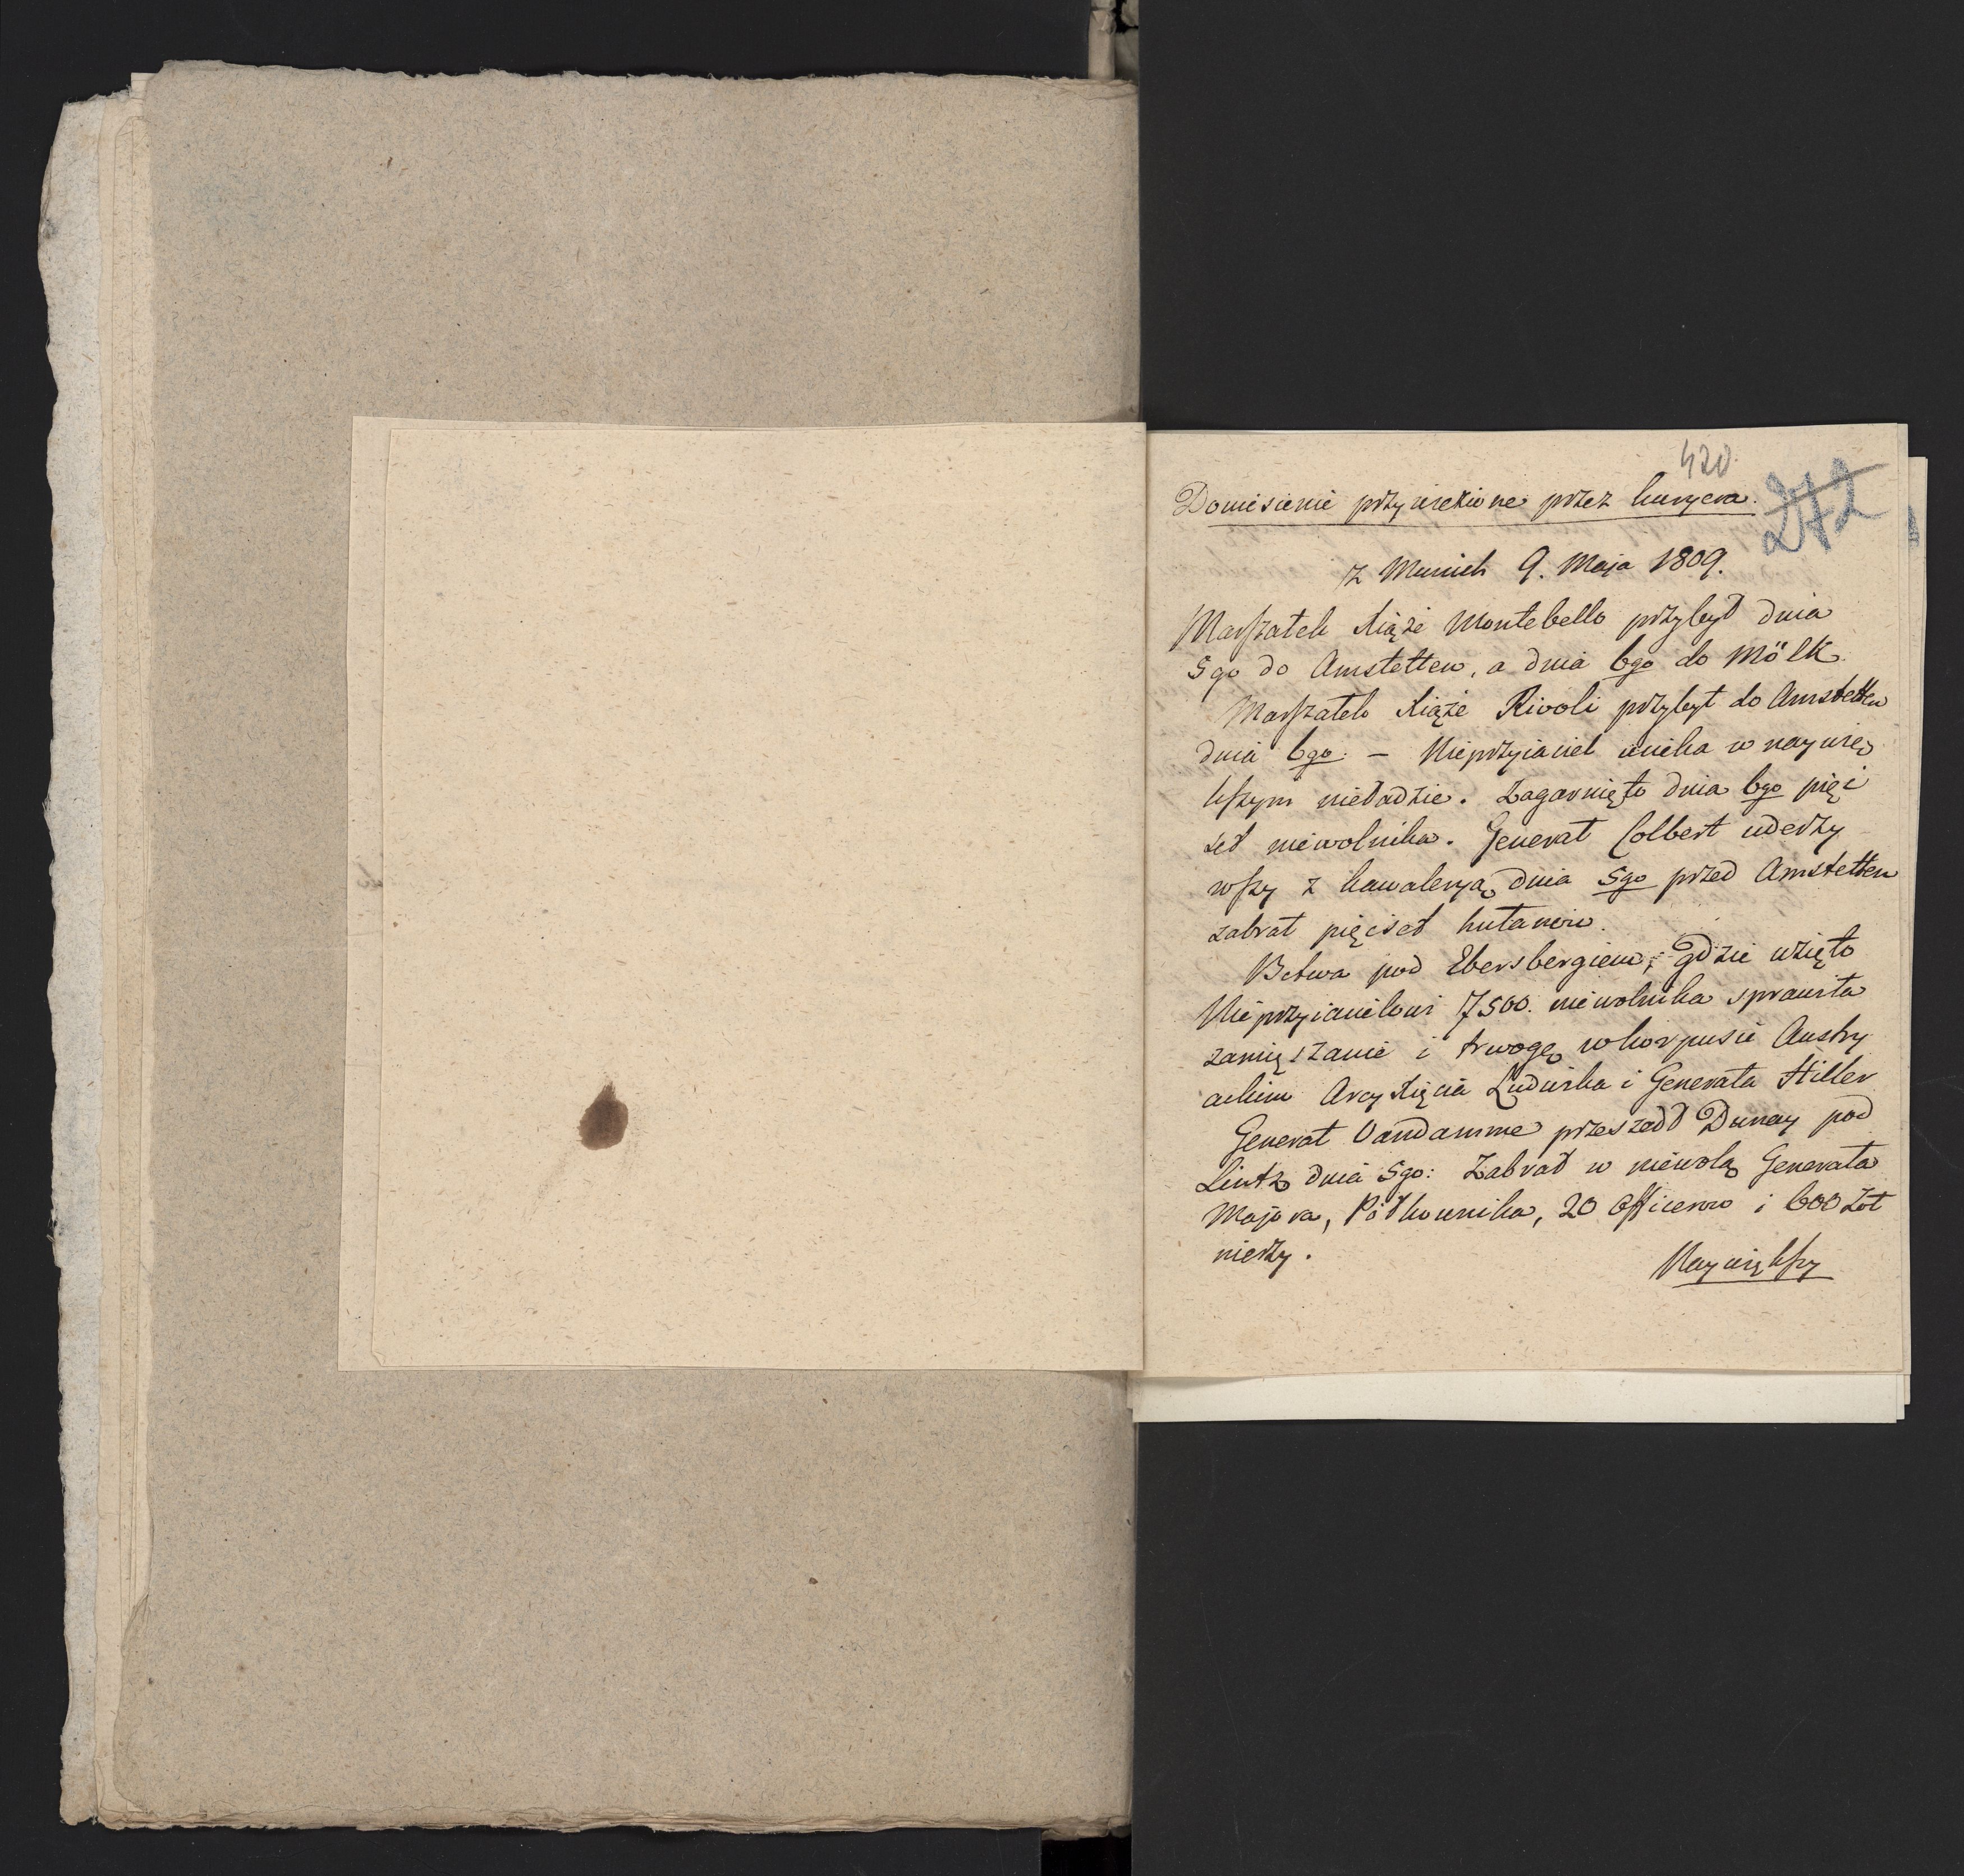 420
272
Doniesienie przywiezione przez kuryera.
z Munich 9. Maja 1809.
Marszałek Xiąże Montebello przybył dnia
5go do Amstetten, a dnia 6go do Mölk.
Marszałek Xiąże Rivoli przybył do Amstetten
dnia 6go. – Nieprzyiaciel ucieka w naywię
kszym nieładzie. Zagarnięto dnia 6go pięć
set niewolnika. Generał Colbert uderzy
wszy z kawaleryą dnia 5go przed Amstetten
zabrał pięćset hułanów.
Bitwa pod Ebersbergiem, gdzie wzięto
Nieprzyiacielowi 7500. niewolnika sprawiła
zamięszanie i trwogę w korpusie Austry
ackim Arcy Xięcia Ludwika i Generała Hiller
Generał Vandamme przeszedł Dunay pod
Lintz dnia 5go: Zabrał w niewolą Generała
Majora, Półkownika, 20 Officerow i 600 Żoł
nierzy.
Naywiększy